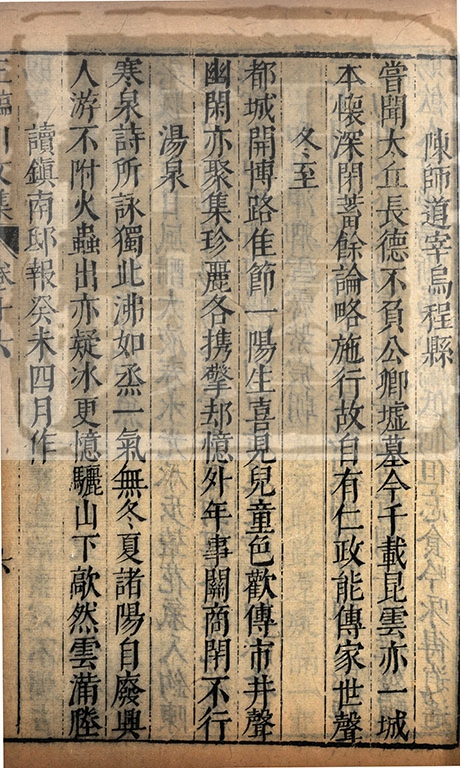 陳師道宰烏程縣
嘗聞太丘長德不負公卿墟墓今千載昆雲亦一城
本懷深閉蓄餘論略施行故自有仁政能傳家世聲
冬至
都城開博路佳節一陽生喜見兒童色歡傳市井聲
幽閑亦聚集珍麗各携擎却憶外年事關商閉不行
湯泉
寒泉詩所詠獨此沸如烝一氣無冬夏諸陽自廢興
人游不附火蟲出亦疑冰更憶驪山下歊然雲滿塍
讀鎮南邸報癸未四月作
王臨川文集
卷十六
六